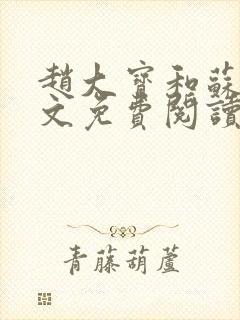 趙大寶和蘇
文免費閱讀
青藤葫蘆